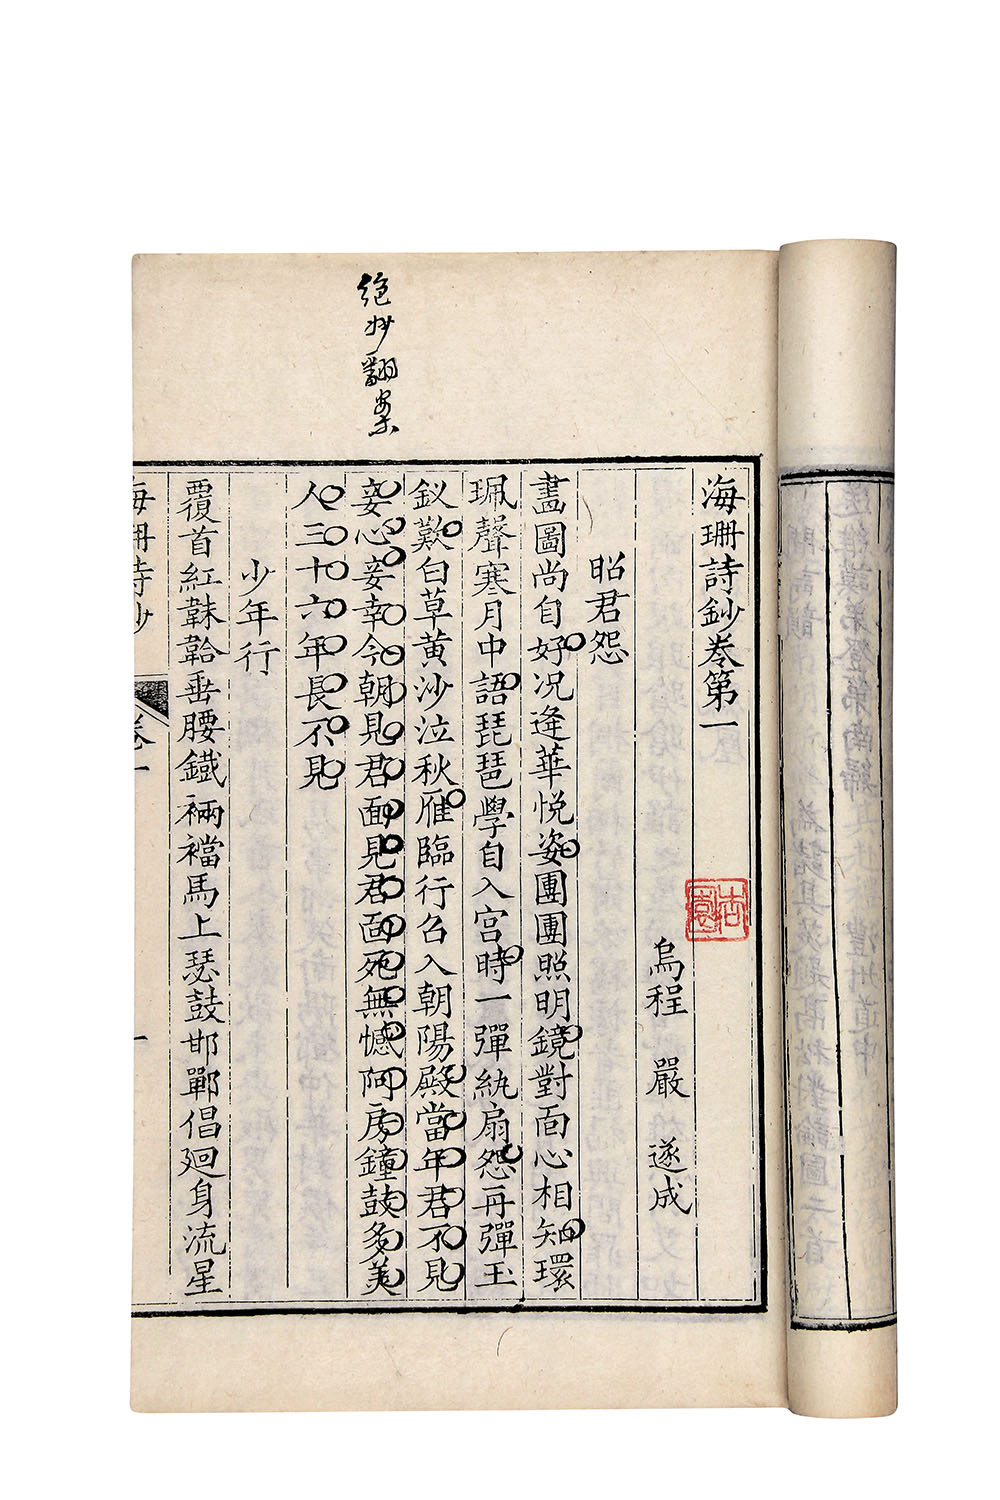 海珊詩鈔卷第一
烏程 嚴 遂成
昭君怨
畵圖尚自好况逢華悅姿團團照明鏡對面心相知環
珮聲寒月中語琵琶學自入宫時一彈紈扇怨再彈玉
釵歎白草黄沙泣秋雁臨行召入朝陽殿當年君不見
妾心妾幸今朝見君面見君面死無憾阿房鐘鼓多美
人三十六年長不見
少年行
覆首紅韎韐垂腰鐵裲襠馬上瑟鼓邯鄲倡廻身流星
海珊詩鈔
卷一
一
絕妙翻案
杏園